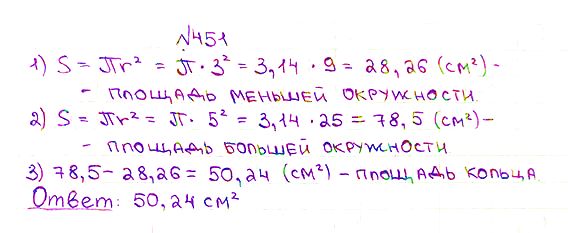 №451
1) S = πr² = π · 3² = 3,14 · 9 = 28,26 (см²) -
- площадь меньшей окружности.
2) S = πr² = π · 5² = 3,14 · 25 = 78,5 (см²) -
- площадь большей окружности.
3) 78,5 - 28,26 = 50,24 (см²) - площадь кольца.
Ответ: 50,24 см²